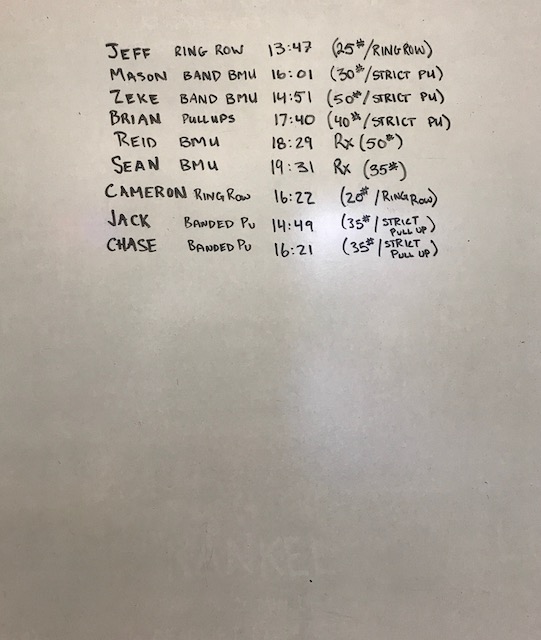 JEFF RING ROW 13:47 (25#/RING ROW)
MASON BAND BMU 16:01 (30#/STRICT PU)
ZEKE BAND BMU 14:51 (50#/STRICT PU)
BRIAN PULLUPS 17:40 (40#/STRICT PU)
REID BMU 18:29 RX (50#)
SEAN BMU 19:31 RX (35#)
CAMERON RING ROW 16:22 (20#/RING ROW)
JACK BANDED PU 14:49 (35#/STRICT PULL UP)
CHASE BANDED PU 16:21 (35#/STRICT PULL UP)